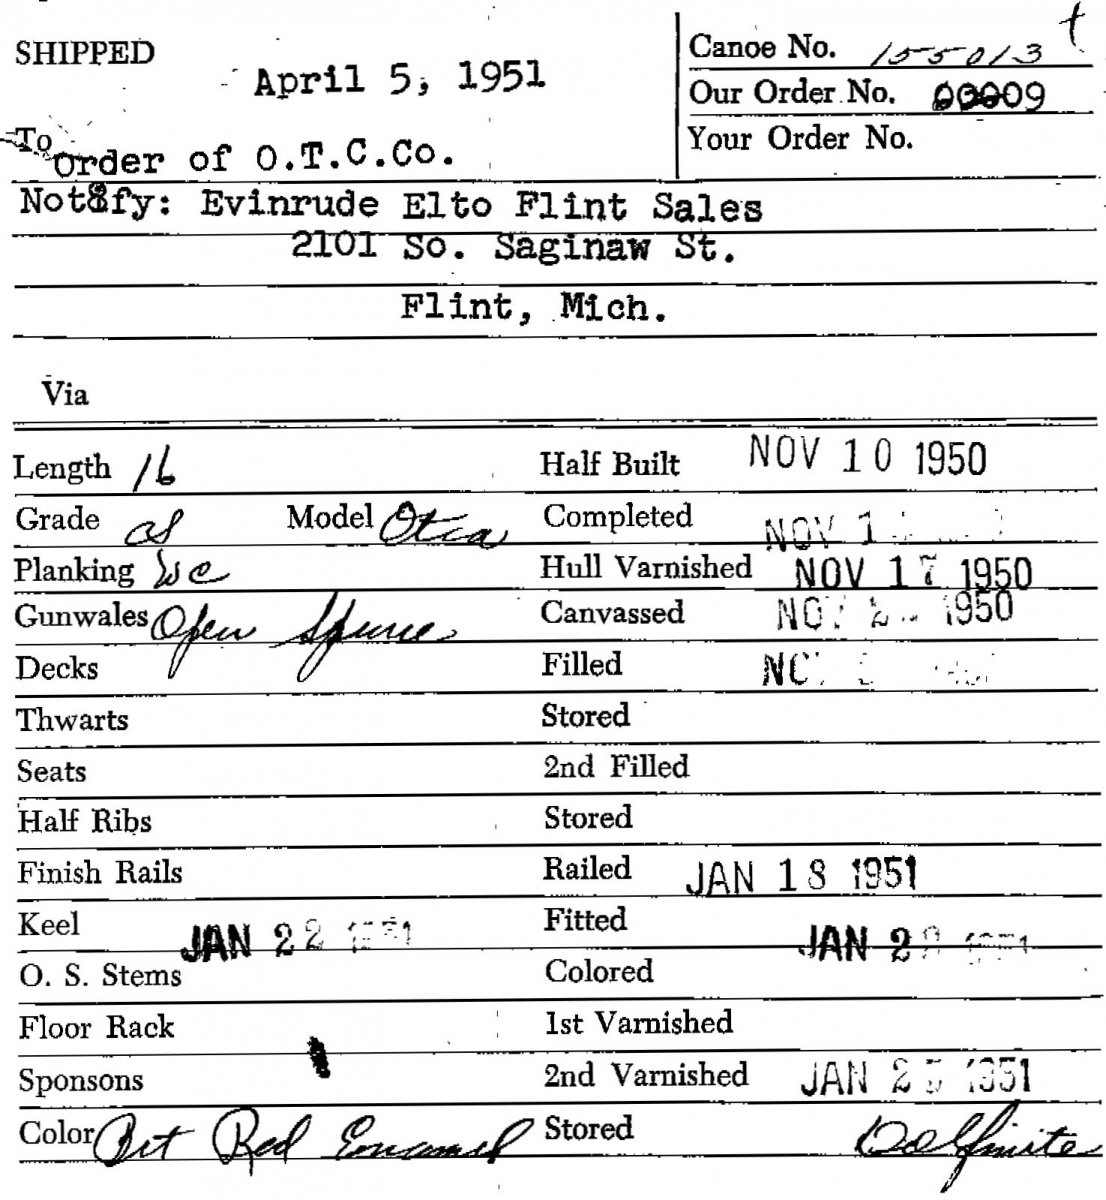 SHIPPED April 5, 1951
Canoe No. 155013 t
Our Order No. 00009
Your Order No.
To Order of O.T.C.Co.
Notify: Evinrude Elto Flint Sales
2101 So. Saginaw St.
Flint, Mich.
Via
Length 16 Half Built NOV 10 1950
Grade Model Otca Completed NOV 1
Planking WC Hull Varnished NOV 17 1950
Gunwales Open Spruce Canvassed NOV 2 1950
Decks Filled
Thwarts Stored
Seats 2nd Filled
Half Ribs Stored
Finish Rails Railed JAN 18 1951
Keel JAN 22 1951 Fitted JAN 2 1951
O. S. Stems Colored
Floor Rack 1st Varnished
Sponsons 2nd Varnished JAN 25 1951
Color Brt Red Enamel Stored